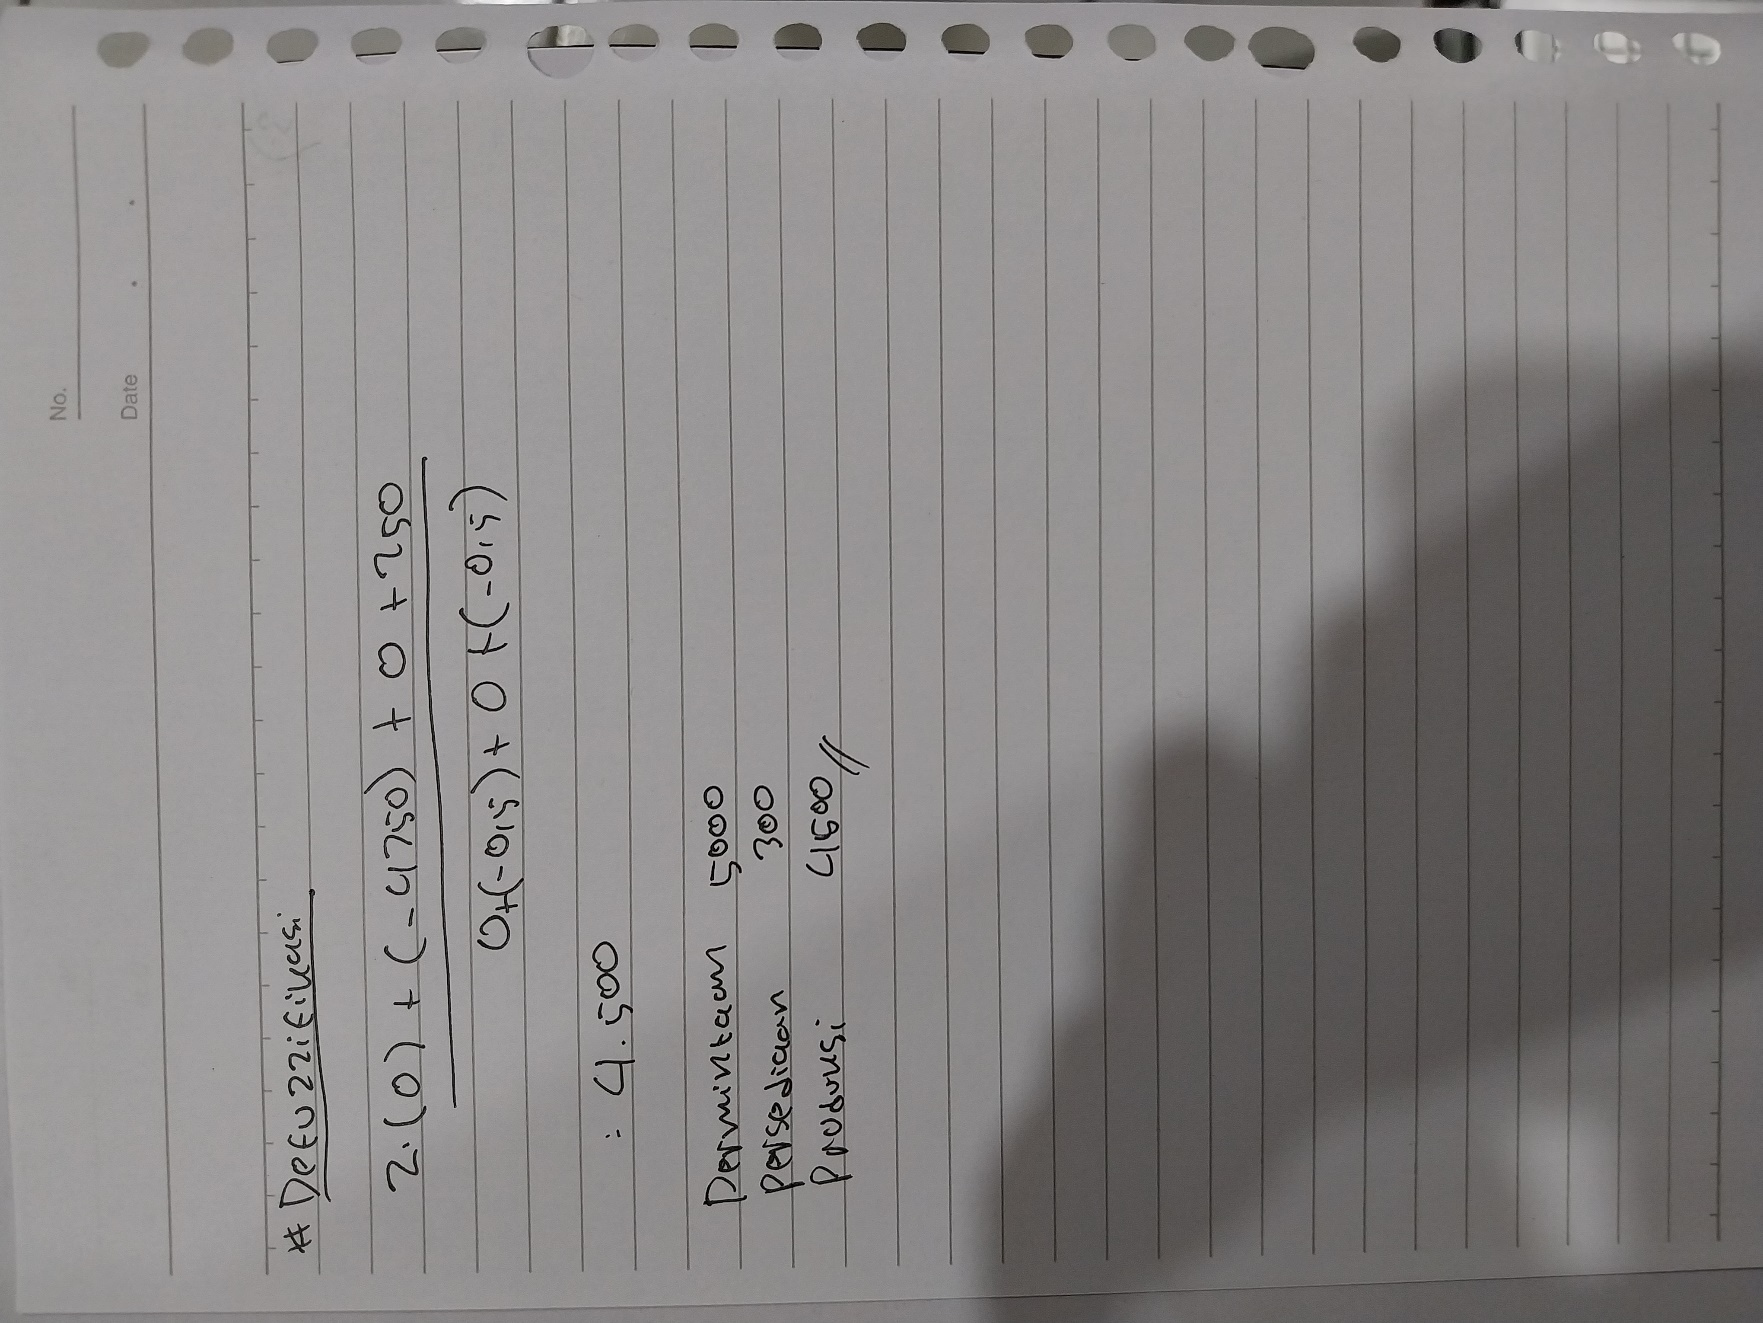 No.
Date
* Defuzzifikasi
Z.(0) + (-4750) + 0 + 250
0+(-0,5) + 0 +(-0,5)
= 4.500
Permintaan 5000
Persediaan 300
Produksi 4500 //